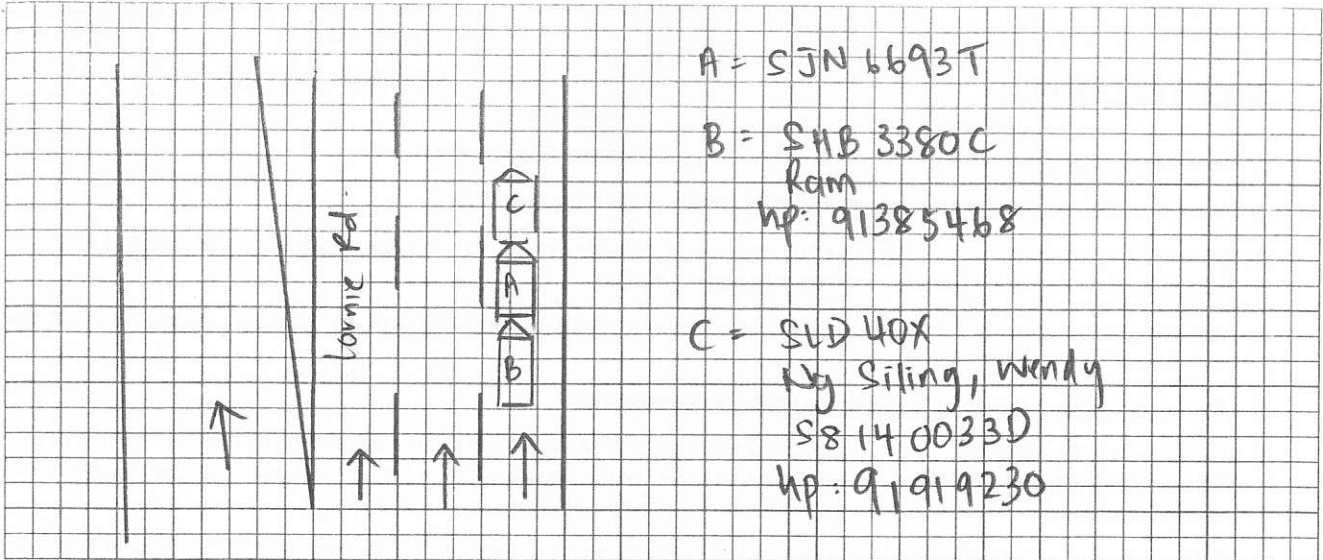 Lornie Rd.
C
A
B
A = SJN 6693T
B = SHB 3380C
Ram
hp: 91385468
C = SLD 40X
Ng Siling, Wendy
S8140033D
hp: 91919230